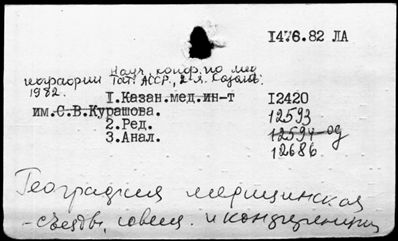 1476.82 ЛА
Науч. конф. по мед.
географии Тат. АССР, 2-я. Казань.
1982.
1.Казан.мед.ин-т 12420
им.С.В.Курашова. 12593
2.Ред. 12594-од
3.Анал. 12686
География медицинская
- съезды, совещ. и конференции